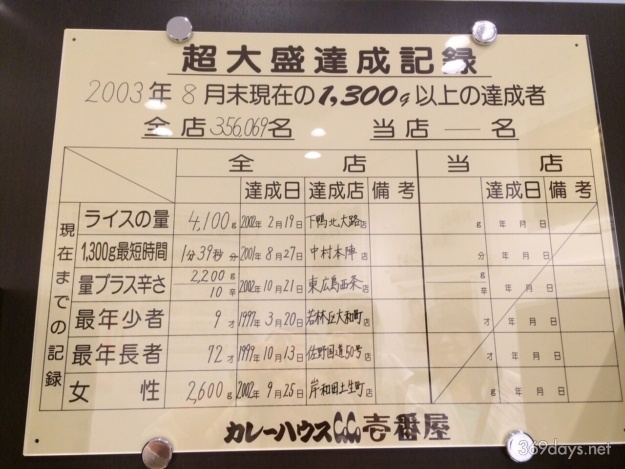 超大盛達成記録
2003年 8月末現在の1,300g以上の達成者
全店356,069名 当店 ― 名
全店 当店
達成日 達成店 備考 達成日 備考
現在までの記録
ライスの量 4,100g 2002年2月19日 下鴨北大路店 g 年月日
1,300g最短時間 1分39秒 分 2001年8月27日 中村本陣店 分 年月日
量プラス辛さ 2,200g 10辛 2002年10月21日 東広島西条店 g 辛 年月日
最年少者 9才 1997年3月20日 若林区大和町店 才 年月日
最年長者 92才 1999年10月13日 佐野国道50号店 才 年月日
女性 2,600g 2002年9月25日 岸和田土生町店 g 年月日
カレーハウスCoCo壱番屋
369days.net